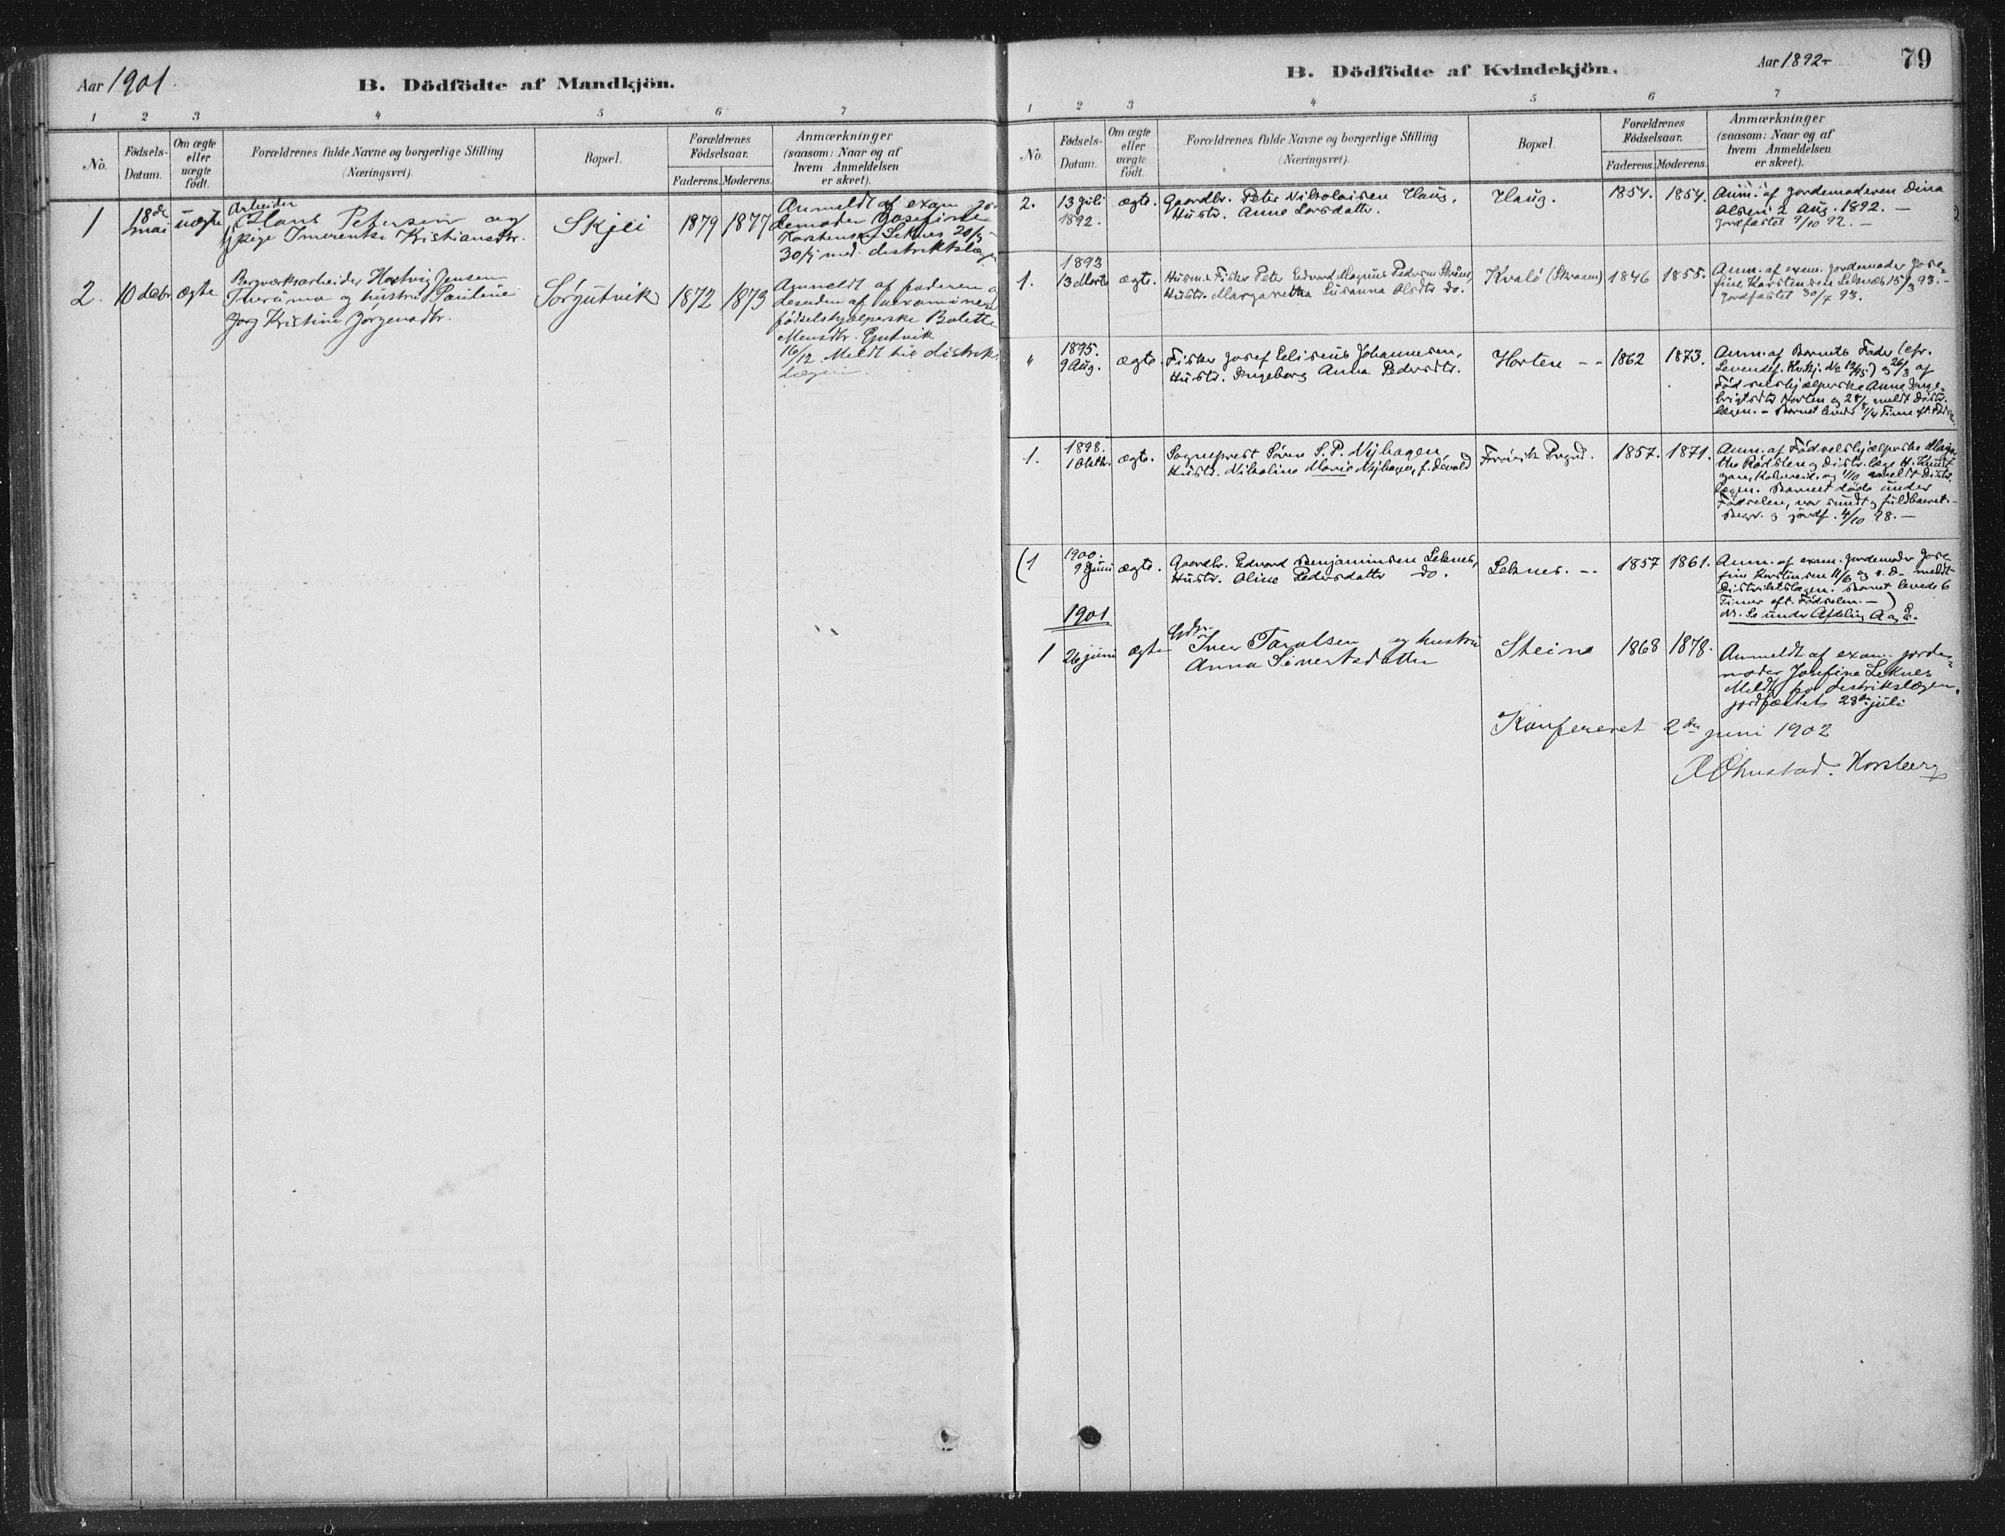 Aar 1901.
B. Dödfödte af Mandkjön.
1 2 3 4 5 6 7
No.
Fødsels-
Datum.
Om ægte
eller
uægte
født.
Forældrenes fulde Navne og borgerlige Stilling
(Næringsvei).
Bopæl.
Forældrenes
Fødselsaar.
Faderens. Moderens.
Anmærkninger
(saasom: Naar og af
hvem Anmeldelsen
er skeet).
1
18de
mai
uægte
Arbeider
Hans Petersen og
pige Kristiansdtr.
Skjei
1879 1877
Anmeldt af exam. jor
demoder Josefine
Karstensen Leknes 20/5
30/5 med. distriktslægen
2.
10 debr.
ægte
Bergværksarbeider Hartvig Jensen
og hustru Pauline
Kristine Jørgensdtr.
Sørgutvik
1872 1873
Anmeldt af faderen
desuden af
fødselshjælperske Bolette
Gutvik
16/12 Meldt til distrikts
lægen.
B. Dödfödte af Kvindekjön.
Aar 1892-
79
1 2 3 4 5 6 7
No.
Fødsels-
Datum.
Om ægte
eller
uægte
født.
Forældrenes fulde Navne og borgerlige Stilling
(Næringsvei).
Bopæl.
Forældrenes
Fødselsaar.
Faderens. Moderens.
Anmærkninger
(saasom: Naar og af
hvem Anmeldelsen
er skeet).
2.
13 Juli
1892.
ægte.
Gaardbr. Peter Nikolaisen Haug,
Hustr. Anne Larsdatter.
Haug.
1854. 1854.
Anm. af Jordemoderen Dina
Olsen 2 Aug. 1892. —
Jordfæstet 9/10 92. —
1.
1893
13 Marts
ægte.
Husm. & Fisker Peter Edvard Magnus Pedersen
Hustr. Margaretha Susanna Olsdtr do.
Kvalö
1846 1855.
Anm. af exam. Jordemoder Jose-
fine Karstensen Leknes 15/3 93. —
Jordfæstet 30/7 93.
"
1895.
9 Aug.
ægte.
Fisker Josef Eliseus Johannesen,
Hustr. Ingeborg Anna Pedersdtr.
Horten - -
1862 1873.
Anm. af Barnets Fader (cfr.
Fødselshjælperske Anna Inge-
brigtsdtr Horten og meldt Distr.
lægen. -
1.
1898.
1 Oktbr.
ægte.
Sogneprest Sören S. P. Nyhagen,
Hustr. Nikoline Marie Nyhagen, f. Devold
1857. 1871.
Anm. af Fødselshjælperske
meldt Distr.
lægen. Barnet døde under
Fødselen, var sundt og fuldbaaret. —
Begr. og jordf. 4/10 98. —
(1
1900.
9 Juni
ægte.
Gaardbr. Edvard Benjaminsen Leknes,
Hustr. Oline Pedersdatter do.
Leknes. - -
1857 1861.
Anm. af exam. Jordemoder Jose-
fine Karstensen 11/6 og s. D. meldt
Distriktslægen. Barnet levede 6
Timer eft. Fødselen. — )
N. Se under Afdeling A og E.
1901
1
26 juni
ægte
Gdbr.
Iver Taralsen og hustru
Anna Sivertsdatter
Steine
1868 1878.
Anmeldt af exam. jorde-
moder Josefine Leknes
Meldt for distriktslægen.
jordfæstet 28de juli
Konfereret 2den juni 1902
Horsberg